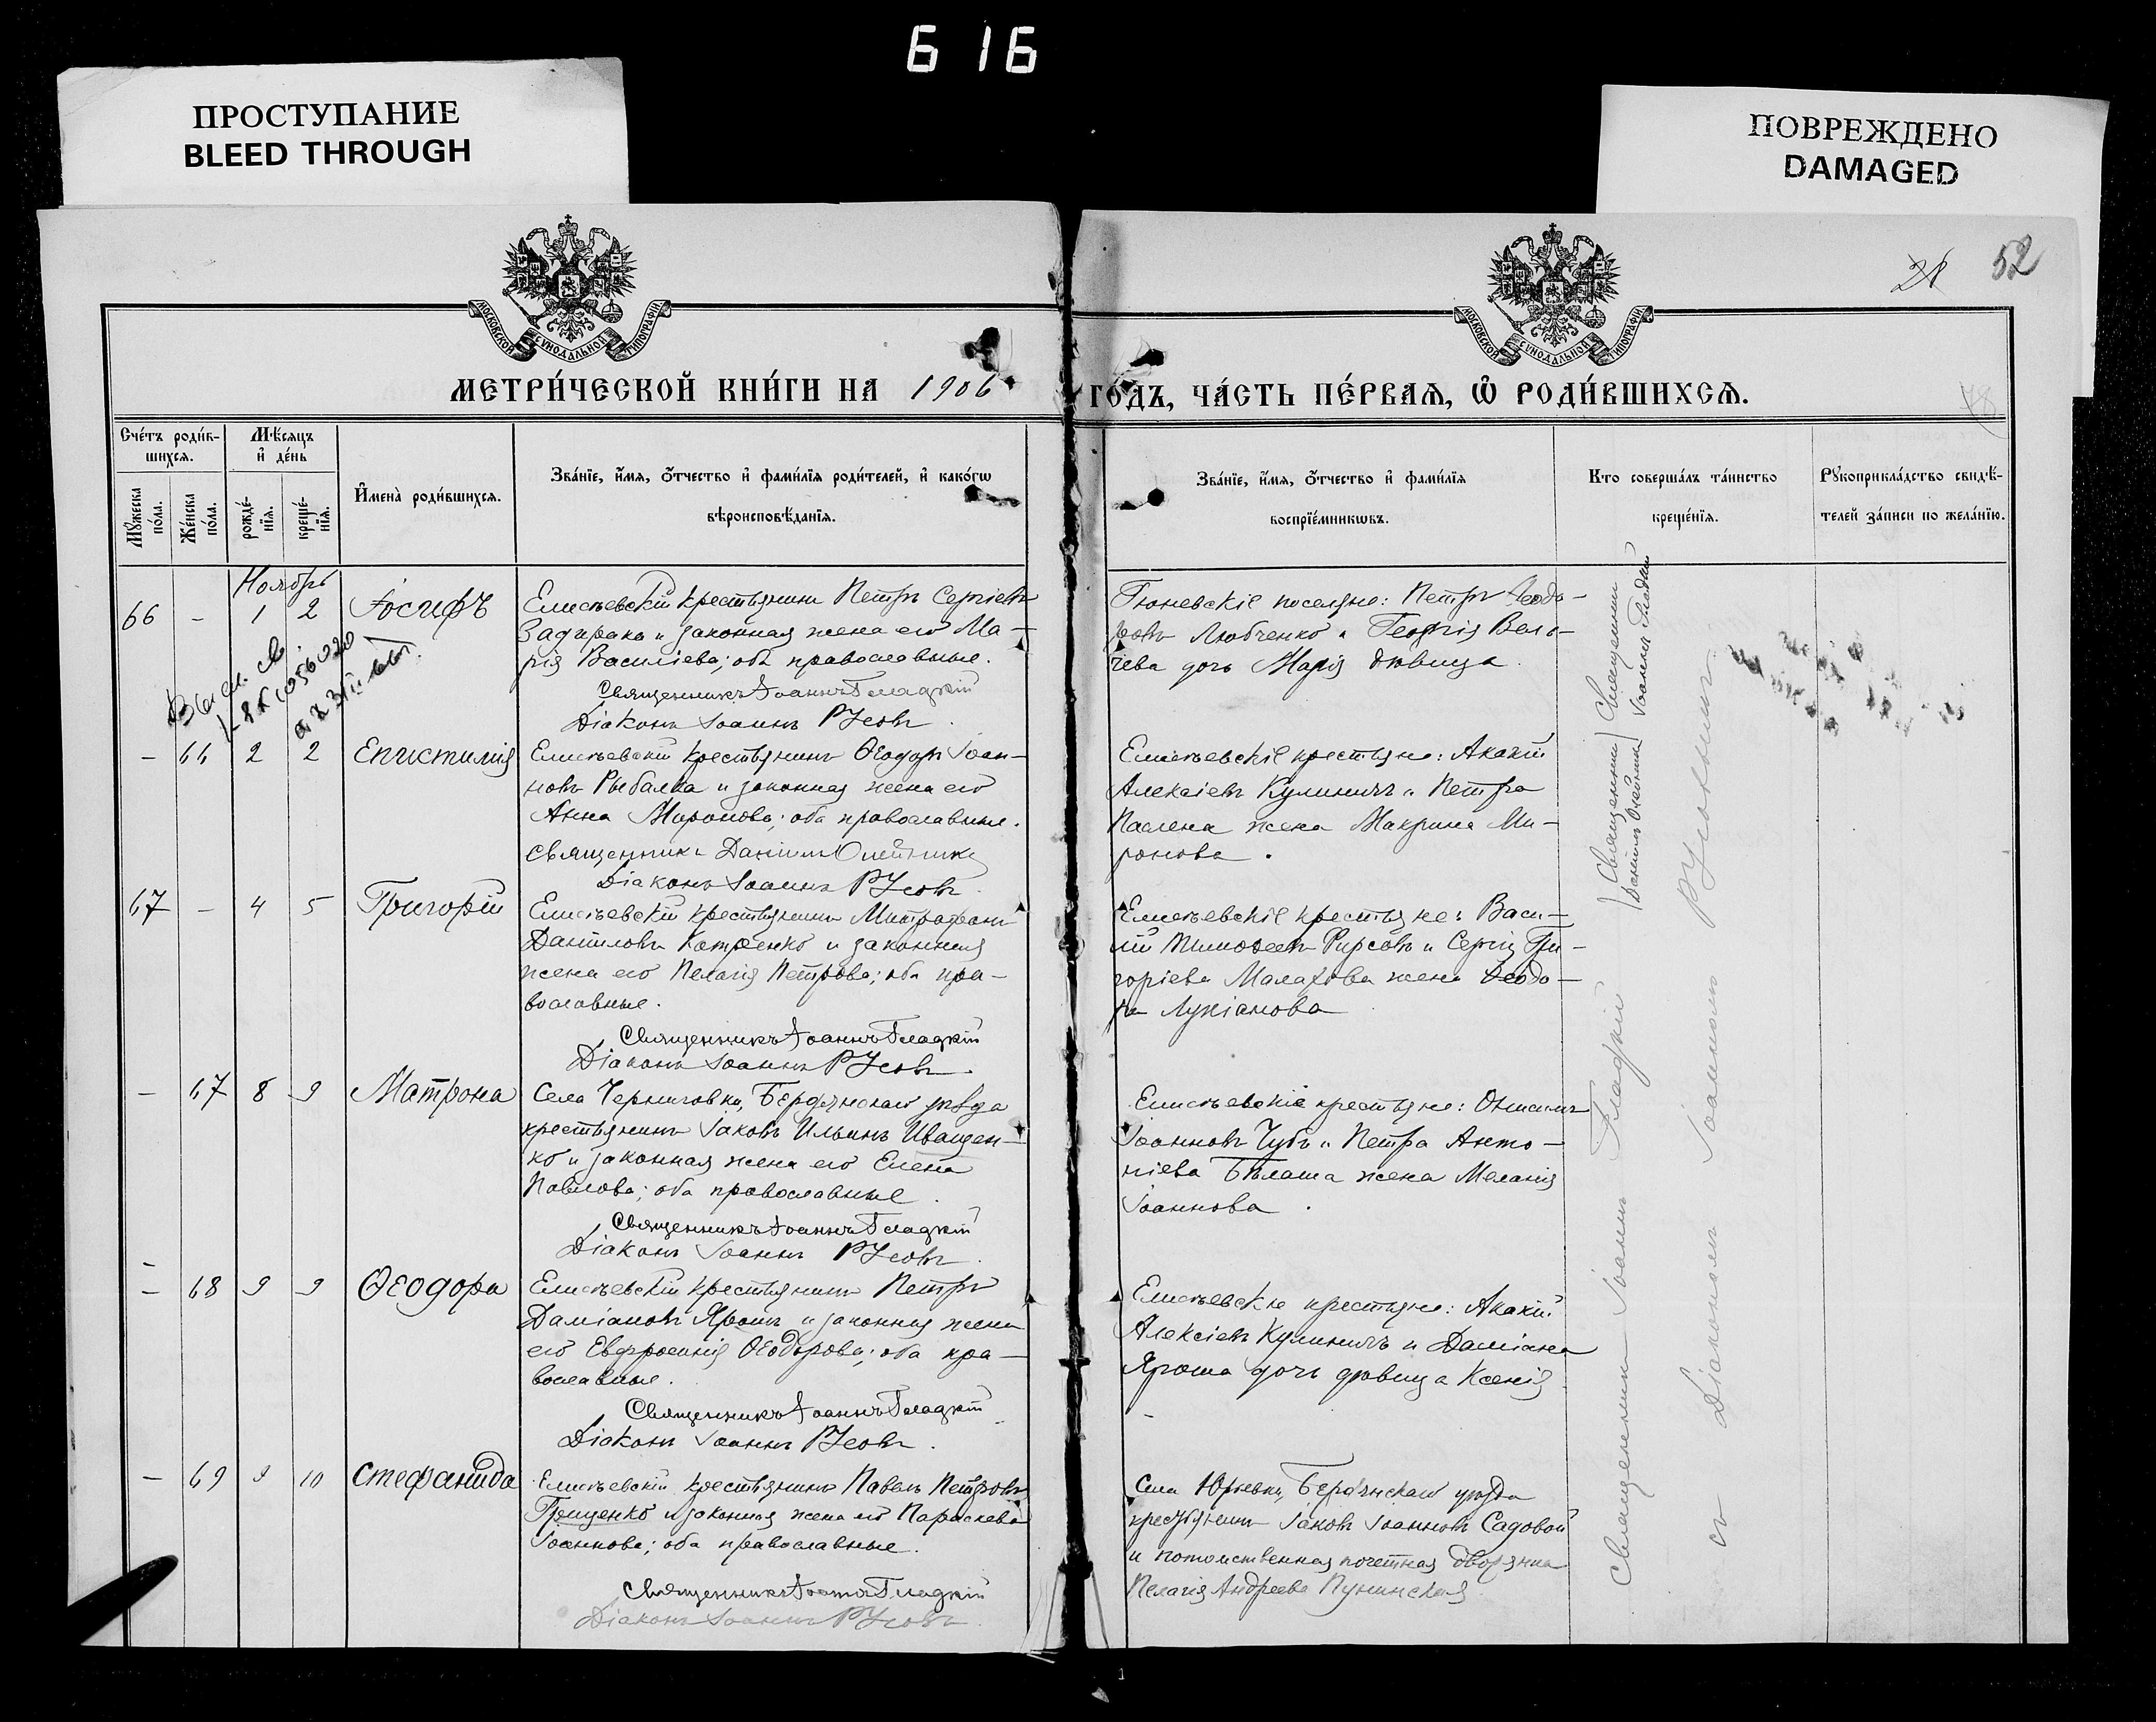 616
ПРОСТУПАНИЕ
BLEED THROUGH
ПОВРЕЖДЕНО
DAMAGED
28 52
МОСКОВСКОЙ СѴНОДАЛЬНОЙ ТИПОГРАФІИ
МОСКОВСКОЙ СѴНОДАЛЬНОЙ ТИПОГРАФІИ
МЕТРИ́ЧЕСКОЙ КНИ́ГИ НА 1906 ГО́ДЪ, ЧА́СТЬ ПЕ́РВАЯ, Ѡ҆ РОДИ́ВШИХСЯ.
Сче́тъ роди́в-
шихся.
Мѣ́сяцъ
и҆ де́нь
Мꙋ́жеска
по́ла.
Же́нска
по́ла.
рожде́-
нїя.
креще́-
нїя.
И҆мена̀ роди́вшихся.
Зва́нїе, и҆́мя, о҆́тчество и҆ фами́лїя роди́телей, и҆ како́гѡ
вѣроисповѣ́данїя.
Зва́нїе, и҆́мя, о҆́тчество и҆ фами́лїя
воспрїе́мникѡвъ.
Кто соверша́лъ та́инство
креще́нїя.
Рꙋкоприкла́дство свидѣ́-
телей за́писи по жела́нїю.
Ноябрь
66 - 1 2 Іосифъ
Елисѣевскій крестьянинъ Петръ Сергіевъ
Задирака и законная жена его Ма-
рія Василіева; оба православные.
Священникъ Іоаннъ Гладкій
Діаконъ Іоаннъ Русовъ
Гюневскіе поселяне: Петръ Ѳеодо-
ровъ Любченко и Георгія Вель-
чева дочь Марія дѣвица.
- 66 2 2 Епистимія
Елисѣевскій крестьянинъ Ѳеодоръ Іоан-
новъ Рыбалка и законная жена его
Анна Миронова; оба православные.
Священникъ Даніилъ Олейникъ
Діаконъ Іоаннъ Русовъ
Елисѣевскіе крестьяне: Акакій
Алексіевъ Кулиничъ и Петра
Паслена жена Макрина Ми-
ронова.
67 - 4 5 Григорій
Елисѣевскій крестьянинъ Митрофанъ
Даніиловъ Котренко и законная
жена его Пелагія Петрова; оба пра-
вославные.
Священникъ Іоаннъ Гладкій
Діаконъ Іоаннъ Русовъ
Елисѣевскіе крестьяне: Васи-
лій Тимоѳеевъ Фирсовъ и Сергія Гри-
горіева Малахова жена Ѳеодо-
ра Лукіанова
- 67 8 9 Матрона
Села Черниговки, Бердянскаго уѣзда
крестьянинъ Іаковъ Ильинъ Иващен-
ко и законная жена его Елена
Павлова; оба православные.
Священникъ Іоаннъ Гладкій
Діаконъ Іоаннъ Русовъ
Елисѣевскіе крестьяне: Онисимъ
Іоанновъ Чубъ и Петра Анто-
ніева Бѣлаша жена Меланія
Іоаннова.
- 68 9 9 Ѳеодора
Елисѣевскій крестьянинъ Петръ
Даміановъ Ярошъ и законная жена
его Евфросинія Ѳеодорова; оба пра-
вославные.
Священникъ Іоаннъ Гладкій
Діаконъ Іоаннъ Русовъ
Елисѣевскіе крестьяне: Акакій
Алексіевъ Кулиничъ и Даміана
Яроша дочь дѣвица Ксенія
- 69 9 10 Стефанида
Елисѣевскій крестьянинъ Павелъ Петровъ
Грищенко и законная жена его Параскева
Іоаннова; оба православные.
Священникъ Іоаннъ Гладкій
Діаконъ Іоаннъ Русовъ
Села Юрьевки, Бердянскаго уѣзда
крестьянинъ Іаковъ Іоанновъ Садовой
и потомственная почетная дворянка
Пелагія Андреева Пунинская
Священникъ Іоаннъ Гладкій
Священникъ Даніилъ Олейникъ
Священникъ Іоаннъ Гладкій
съ Діакономъ Іоанномъ Русовымъ